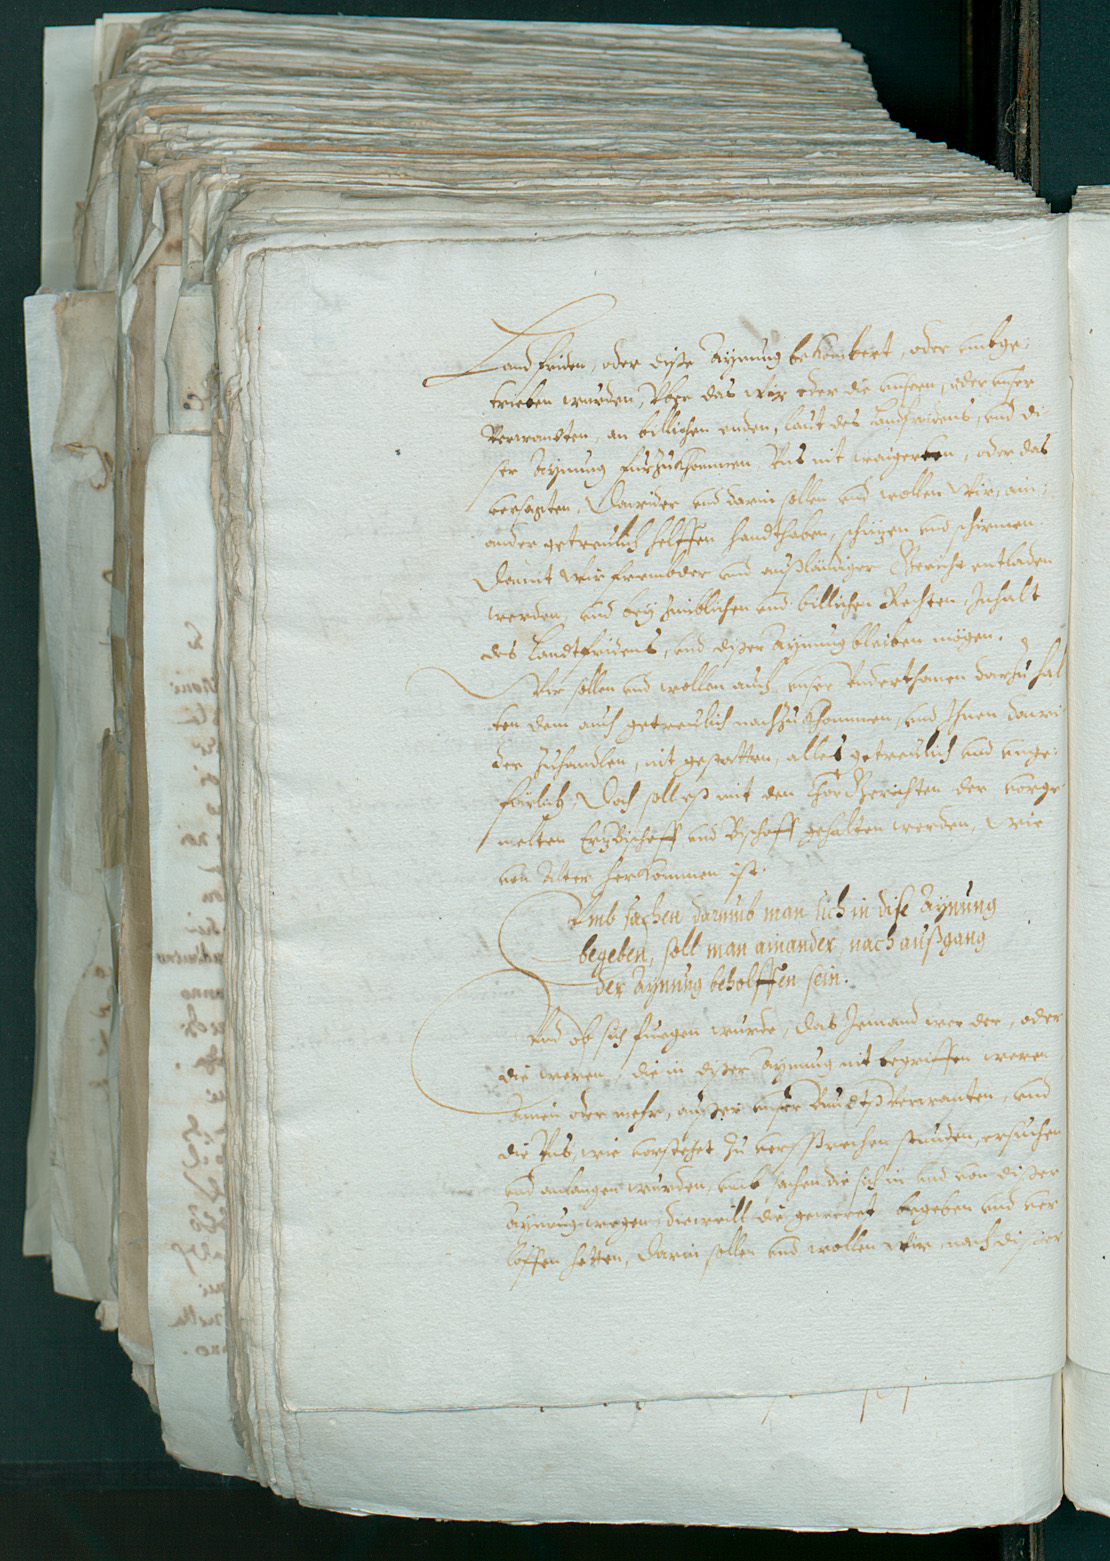 Landfriden, oder diße Aynung bekombert, oder umbge-
trieben wurden, Uber das wir oder die unsern, oder unser
Verwandten, an billichen enden, laut des Landfridens, und di-
ser Aynung fürzukhommen Uns nit waigerten, oder das
versagten, Darwider und darin sollen und wollen Wir, ain-
ander getreulich helffen handthaben, schützen und schirmen
Damit Wir frembder und außländiger Gericht entladen
werden, und bey zimblichen und billichen Rechten, Inhalt
des Landtfridens, und dißer Aynung bleiben mögen.
Wir sollen und wollen auch unser Underthanen darzu hal
ten dem auch getreulich nachzukhommen, und Ihnen darwi
der zuhandlen, nit gestatten, alles getreulich und unge-
färlich, Doch soll eß mit den Chor Gerichten der vorge-
melten Ertzbischoff und Bischoff gehalten werden, Wie
von Alter herkommen ist.
Umb sachen darumb man sich in dise Aynung
begeben, soll man ainander, nach außgang
der Aynung beholffen sein.
Und ob sich fuegen wurde, das Jemand wer der, oder
die weren, die in dißer Aynung nit begriffen weren
ainen oder mehr, außer unser Bundtsverwanten, und
die Uns, wie vorstehet zu versprechen stunden, ersuchen
und anlangen wurden, umb sachen die sich in und von dißer
Aynung wegen, dieweill die geweret begeben und ver
loffen hetten, Darin sollen und wollen Wir, nach dißer